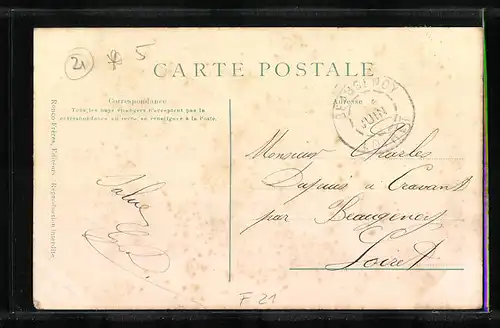 21
5
CARTE POSTALE
Correspondance
Tous les pays étrangers n'acceptent pas la
correspondance au recto, se renseigner à la Poste.
Adresse
BEAUGENCY
JUIN
LOIRET
Monsieur Charles
Dupuis à Cravant
par Beaugency
Loiret
Salue
Ronco Frères, Editeurs - Reproduction interdite.
F 21